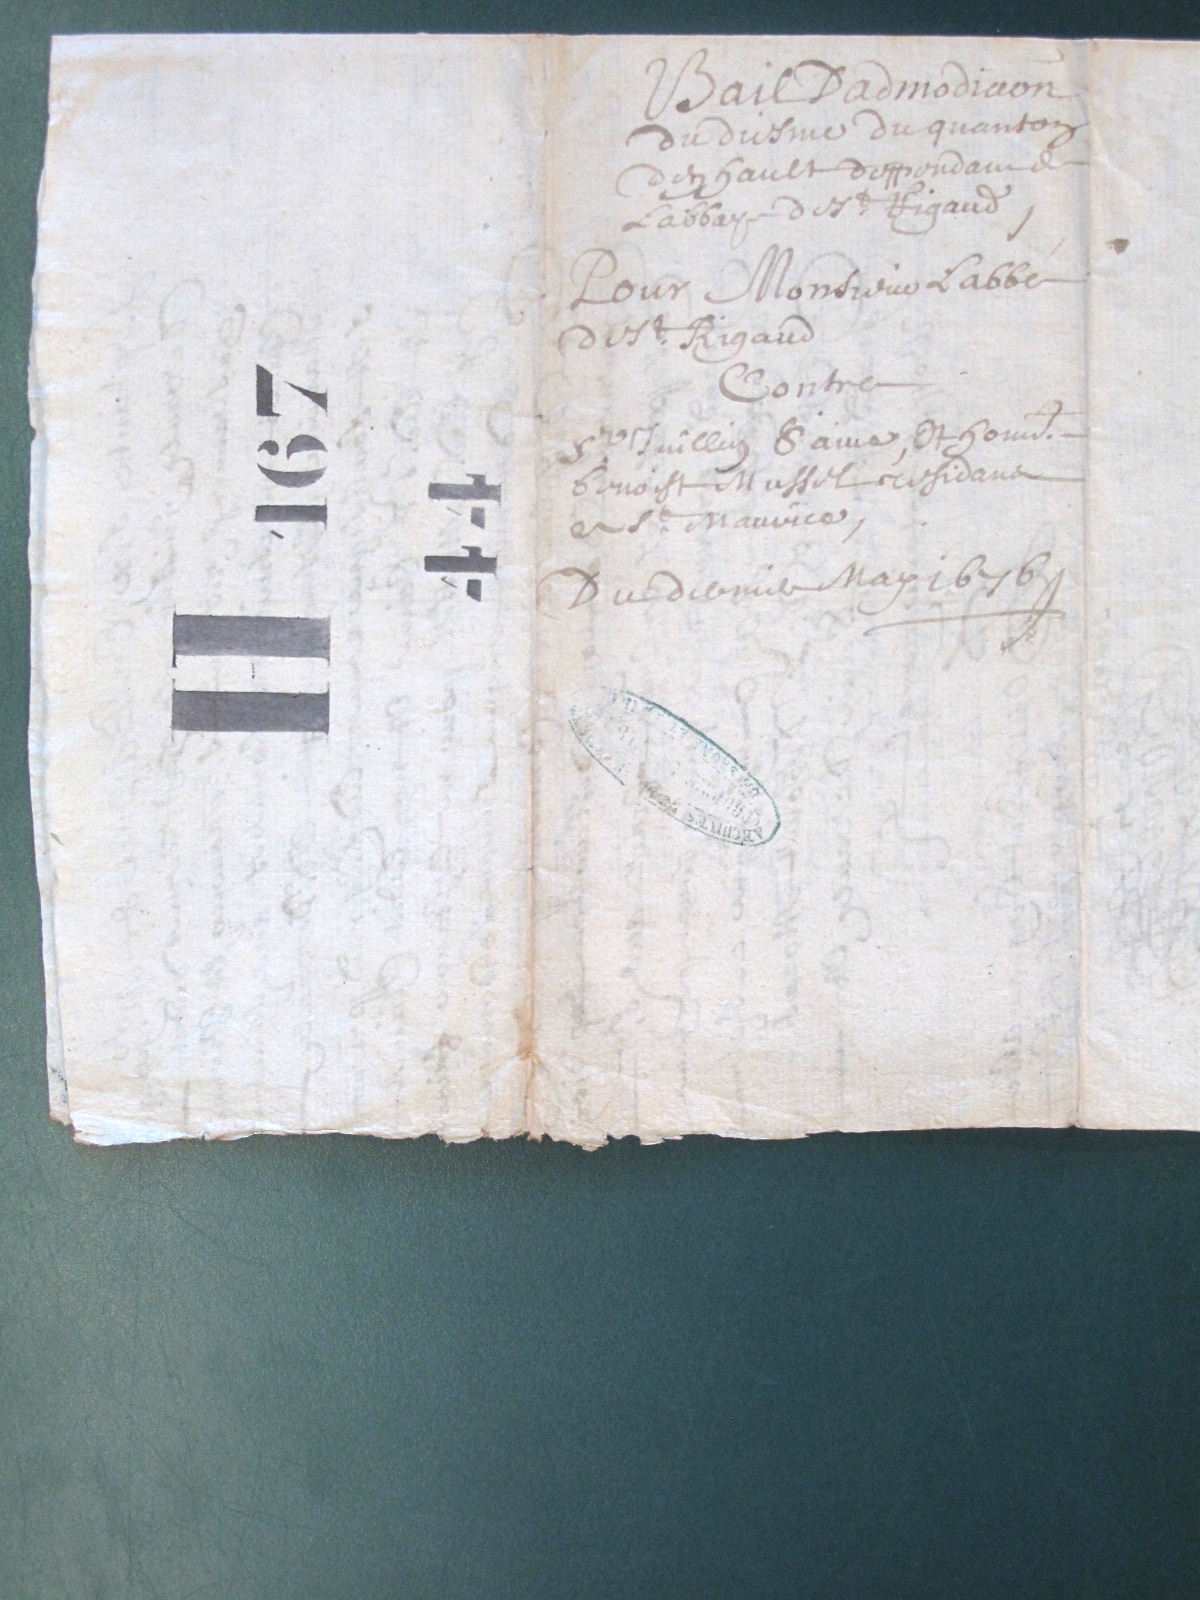 Bail Dadmodiaon
du diesme du quanton
den hault deppendant de
Labbaye de St. Rigaud,
Pour Monsieur Labbé
de St. Rigaud
Contre
Sr. et honn.
benoist Mussel residans
a St. Maurice,
Du dernier May 1676
H 167
44
ARCHIVES